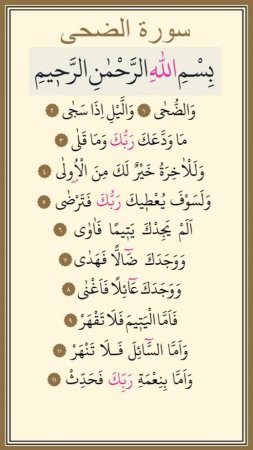 سورة الضحى
بِسْمِ اللهِ الرَّحْمٰنِ الرَّحٖيمِ
وَالضُّحٰى ١ وَالَّيْلِ اِذَا سَجٰى ٢
مَا وَدَّعَكَ رَبُّكَ وَمَا قَلٰى ٣
وَلَلْاٰخِرَةُ خَيْرٌ لَكَ مِنَ الْاُو۫لٰى ٤
وَلَسَوْفَ يُعْطٖيكَ رَبُّكَ فَتَرْضٰى ٥
اَلَمْ يَجِدْكَ يَتٖيمًا فَاٰوٰى ٦
وَوَجَدَكَ ضَٓالًّا فَهَدٰى ٧
وَوَجَدَكَ عَٓائِلًا فَاَغْنٰى ٨
فَاَمَّا الْيَتٖيمَ فَلَا تَقْهَرْ ٩
وَاَمَّا السَّٓائِلَ فَلَا تَنْهَرْ ١٠
وَاَمَّا بِنِعْمَةِ رَبِّكَ فَحَدِّثْ ١١